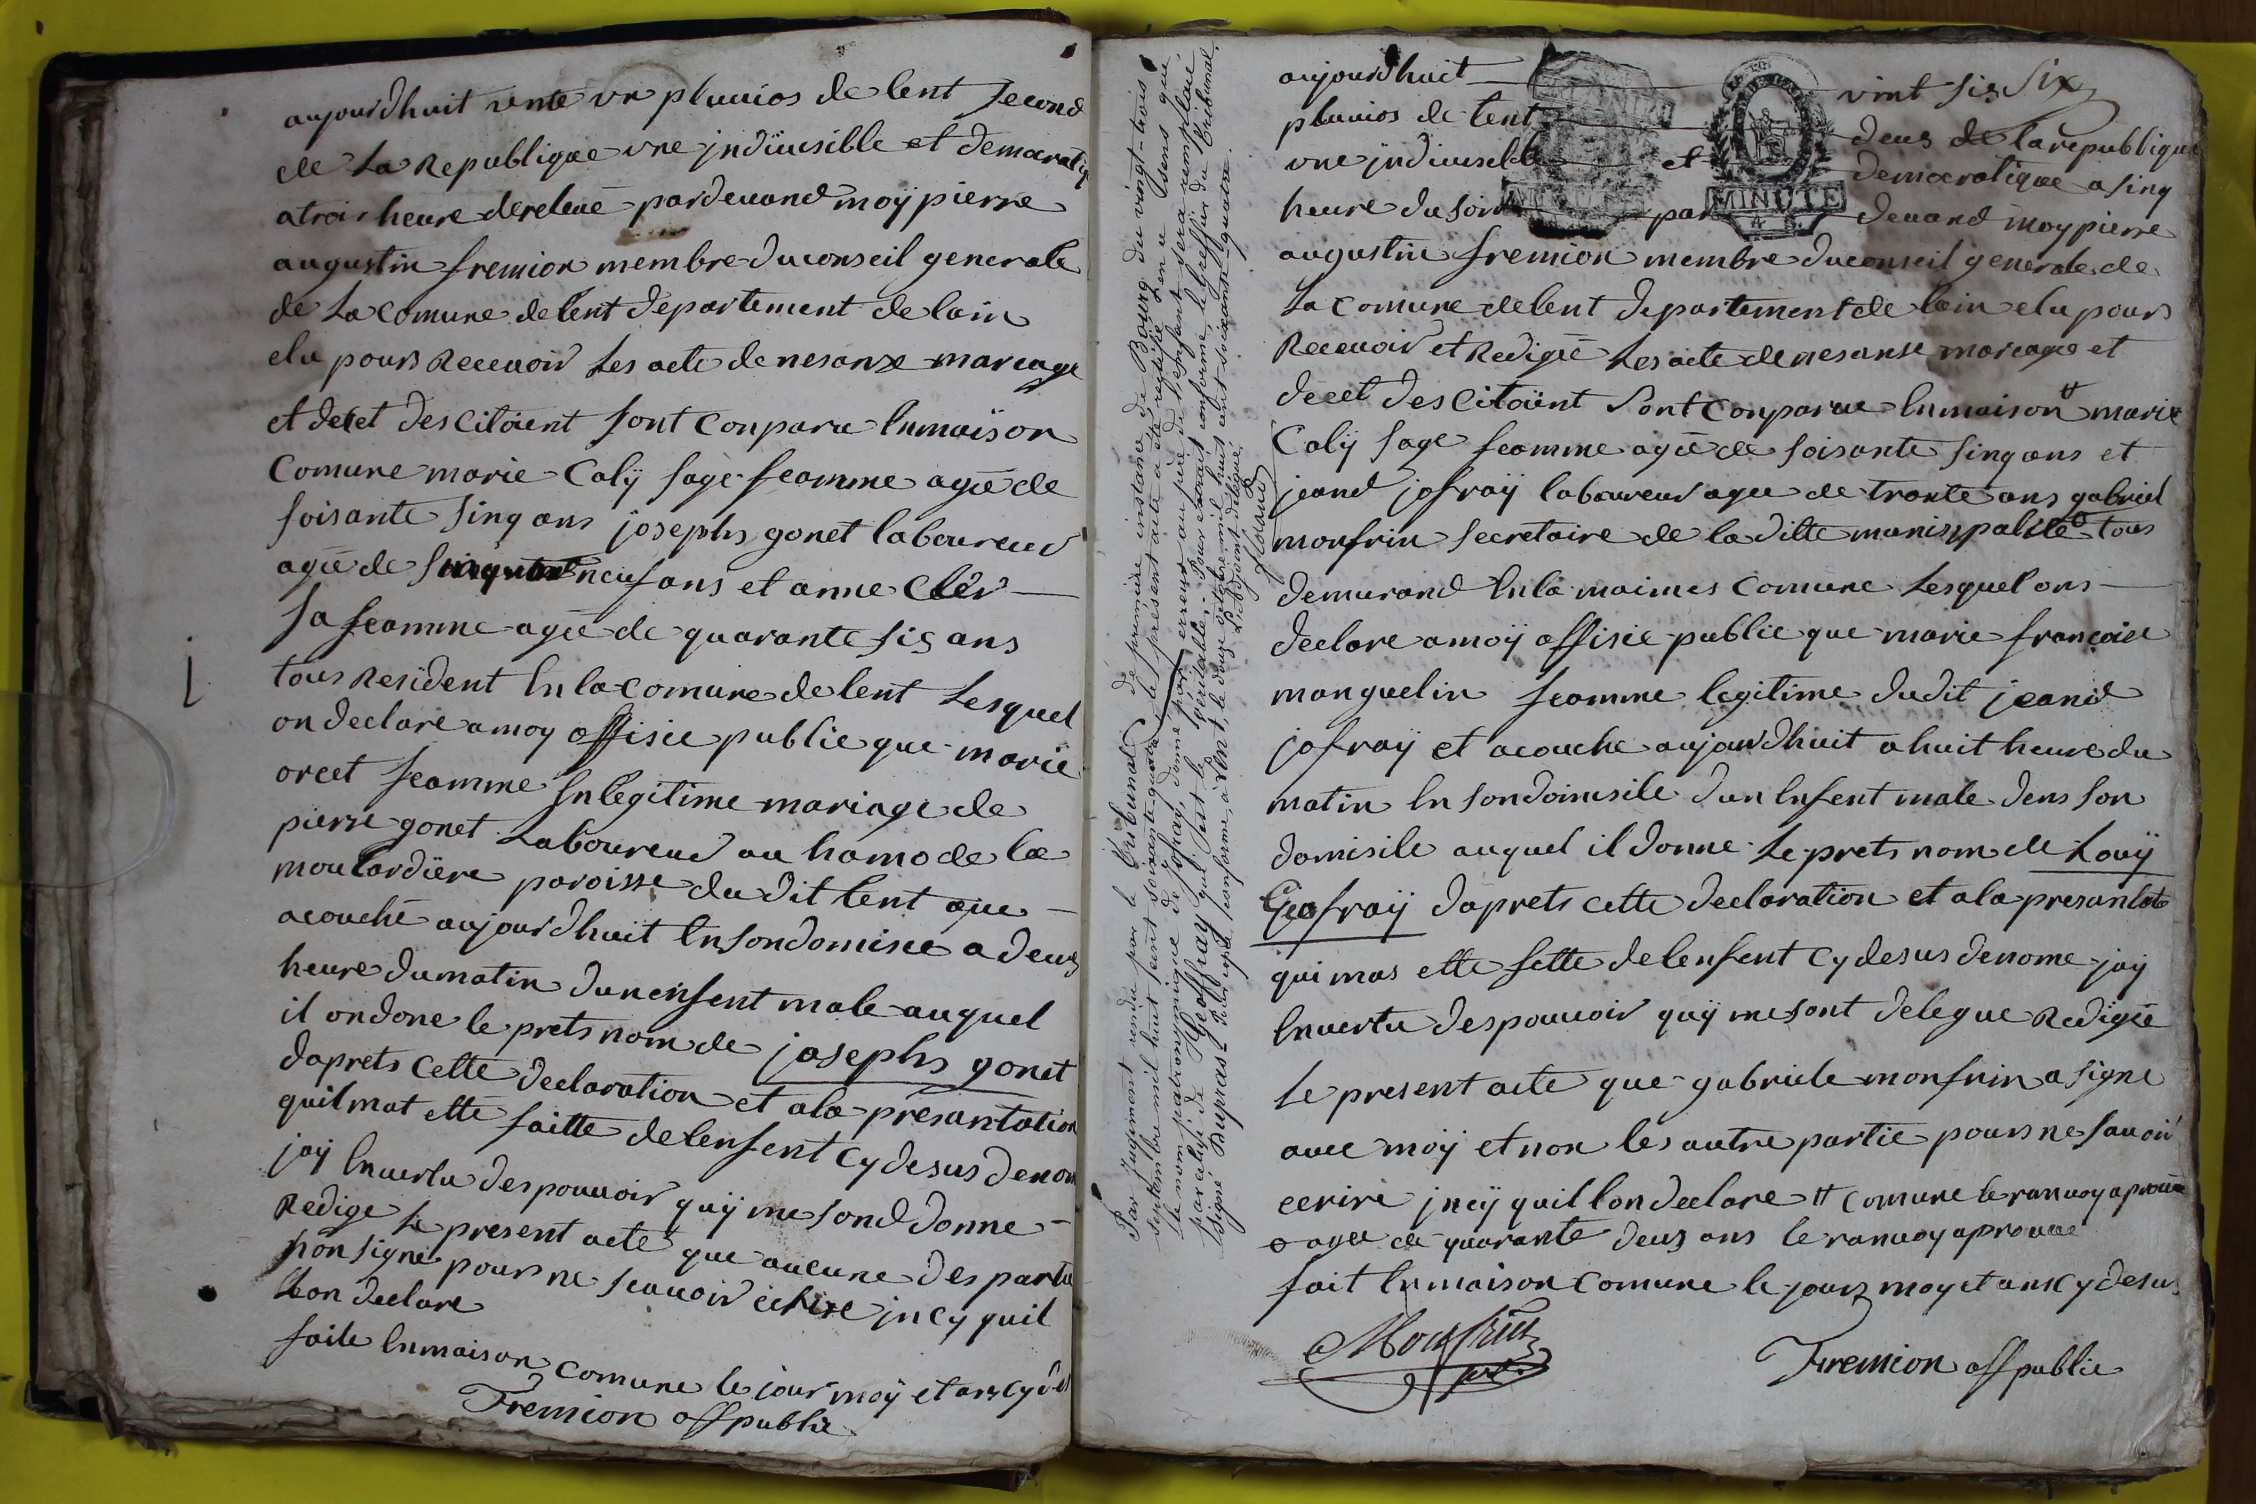 aujourdhuit vente un pluuios de lent second
de La Republique vne jndiuisible et democratiq
a trois heure de releué pardeuand moÿ pierre
augustin fremion membre du conseil generale
de La Comune de lent departement de lain
elu pours Receuoir Les acte de nesanse mareage
et decet des Citoient sont Conparu Enmaison
Comune marie Calÿ sage feamme ageé de
soisante sinq ans josephs gonet laboureur
ageé de neuf ans et anne Clér
sa feamme ageé de quarante sis ans
tous Resident En la Comune de lent Lesquel
on declare a moy offisie publie que marie
orcet feamme En legitime mariage de
pierre gonet Laboureur au hamo de la
moulardiere paroisse du dit lent que
acouché aujourdhuit En son domisie a deus
heure du matin dun enfent male auquel
il on done le prets nom de josephs gonet
daprets Cette declaration et ala présantation
quil mat etté faitte de lenfent Cy desus denom
jaÿ En uertu des pouuoir quÿ me sond donne
Redige Le present acte que aucune des partie
non signe pours ne scauoir ecrire jn cy quil
Lon declare
faite Enmaison Comune le jour moÿ et ans Cy des
Fremion off publie
Par jugement rendu par le Tribunal de première instance de Bourg du vingt-trois
septembre mil huit cent soixante-quatre le présent acte a été rectifié en ce sens que
le nom patronymique de Jofray, donné par erreur au père de l'enfant sera remplacé
par celui de Geoffray qui est le véritable. Pour extrait conforme, le greffier du Tribunal.
Signé Dupras. Pour copie conforme, à Lent, le douze octobre mil huit cent soixante-quatre.
L'adjoint délégué,
aujourdhuit vint sis Six
pluuios de lent deus de la republique
vne jndiuiselble et democratique a sinq
heure du soir par deuand moy pierre
augustin fremion membre du conseil generale de
La Comune de lent departement de lain elu pours
Receuoir et Redigié Les acte de nesanse mareage et
decet des Citoïent sont Conparue Enmaison # marie
Calÿ sage feamme ageé de soisante sinq ans et
jeand jofraÿ laboureur agee de trante ans gabriel
monfrin secretaire de la ditte munisypalité o tous
demurand En la maimes Comune Lesquel ons
declare a moÿ offisie publie que marie françoise
manguelin feamme legitime du dit jeand
jofraÿ et acouche aujourdhuit a huit heure du
matin En son domisile dun Enfent male dens son
domisile auquel il donne Le prets nom de Louÿ
Geofraÿ daprets cette declaration et a la
qui mas ette fette de lenfent Cy desus denome jaÿ
En uertu des pouuoir quÿ me sont delegue Redigié
Le present acte que gabriele monfrin a signe
auec moÿ et non les autre partie pours ne sauoir
ecrire jn cÿ quil lon declare # comune le ranuoy aprouue
o agee de quarante deus ans le ranuoy aprouue
fait Enmaison Comune le jours moy et ans Cy desus
Monfrin
Fremion off publie
MINUTE